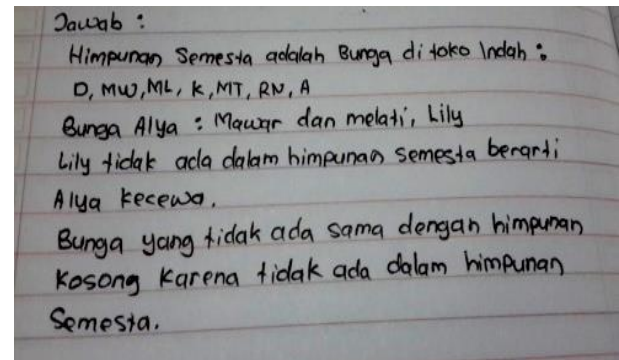 Jawab :
Himpunan Semesta adalah Bunga di toko Indah :
D, MW, ML, K, MT, RN, A
Bunga Alya : Mawar dan melati, Lily
Lily tidak ada dalam himpunan semesta berarti
Alya kecewa.
Bunga yang tidak ada sama dengan himpunan
Kosong Karena tidak ada dalam himpunan
Semesta.